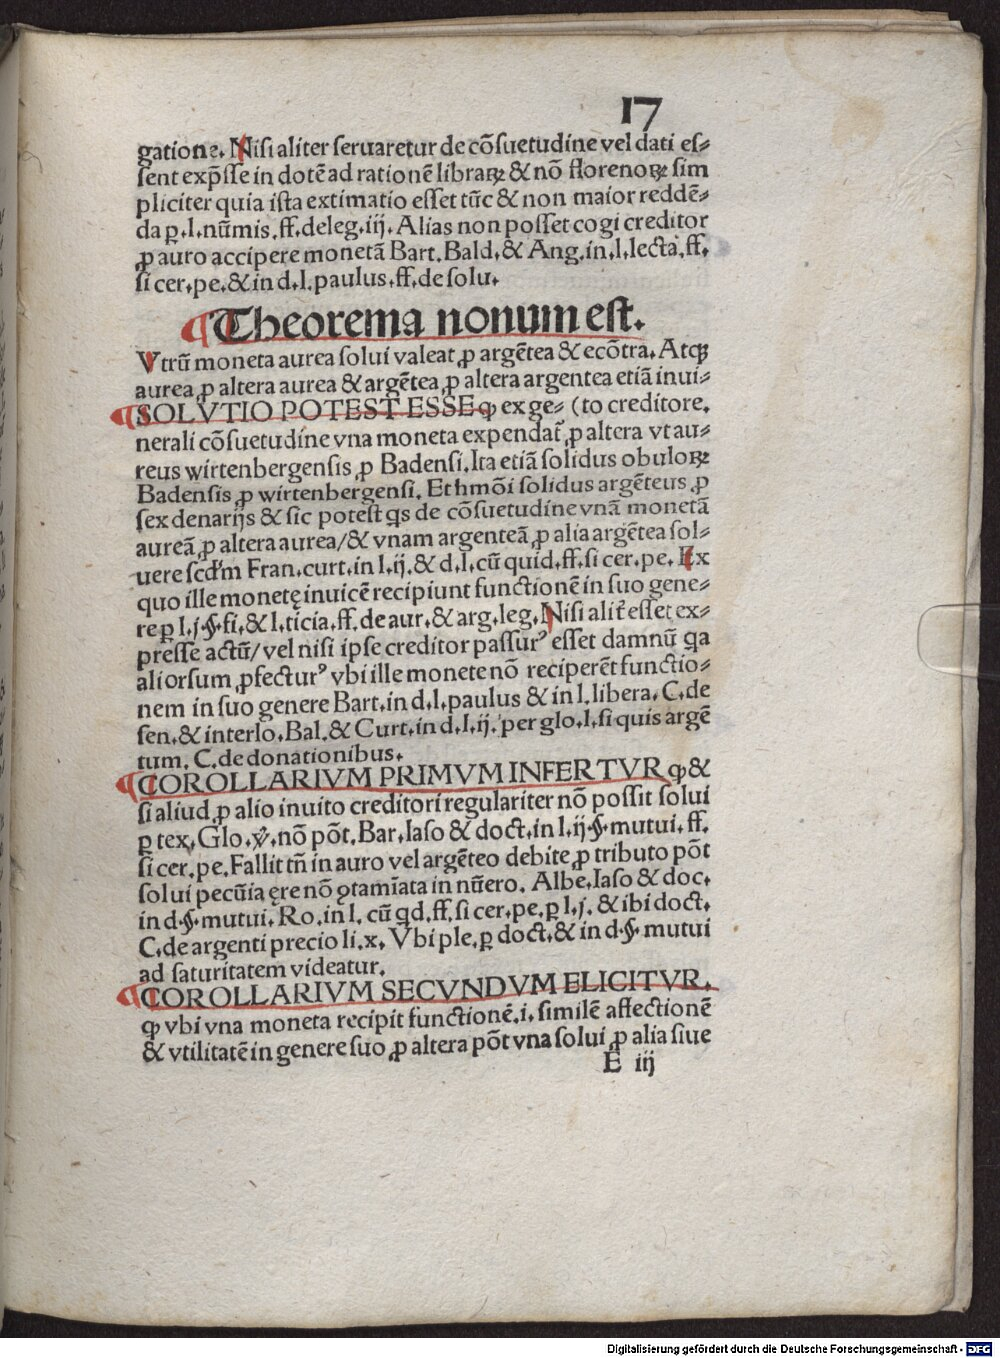 17
gatione. Nisi aliter seruaretur de cõsuetudine vel dati es⸗
sent exp̃sse in dotẽ ad rationẽ libraꝝ & nõ florenoꝝ sim
pliciter quia ista extimatio esset tũc & non maior reddẽ⸗
da ꝑ .l. nũmis. ff. de leg. iij. Alias non posset cogi creditor
ꝓ auro accipere monetã Bart. Bald. & Ang. in .l. lecta. ff.
si cer. pe. & in d. l. paulus. ff. de solu.
Theorema nonum est.
Vtrũ moneta aurea solui valeat ꝓ argẽtea & ecõtra. Atqꝫ
aurea ꝓ altera aurea & argẽtea ꝓ altera argentea etiã inui⸗
SOLVTIO POTEST ESSE ꝙ ex ge⸗ (to creditore.
nerali cõsuetudine vna moneta expendat̃ ꝓ altera vt au⸗
reus wirtenbergensis ꝓ Badensi. Ita etiã solidus obuloꝝ
Badensis ꝓ wirtenbergensi. Et hmõi solidus argẽteus ꝓ
sex denarijs & sic potest qs de cõsuetudine vnã monetã
aureã ꝓ altera aurea/ & vnam argenteã ꝓ alia argẽtea sol⸗
uere scd'm Fran. curt. in l. ij. & d. l. cũ quid. ff. si cer. pe. Ex
quo ille monetę inuicẽ recipiunt functionẽ in suo gene⸗
re ꝑ l. j. §. fi. & l. ticia. ff. de aur. & arg. leg. Nisi alit̃ esset ex⸗
presse actũ/ vel nisi ipse creditor passurꝰ esset damnũ qa
aliorsum ꝓfecturꝰ vbi ille monete nõ reciperẽt functio⸗
nem in suo genere Bart. in d. l. paulus & in l. libera. C. de
sen. & interlo. Bal. & Curt. in d. l. ij. per glo. l. si quis argẽ
tum. C. de donationibus.
COROLLARIVM PRIMVM INFERTVR ꝙ &
si aliud ꝓ alio inuito creditori regulariter nõ possit solui
ꝑ tex. Glo. ꝟ. nõ põt. Bar. Iaso & doct. in l. ij §. mutui. ff.
si cer. pe. Fallit tñ in auro vel argẽteo debite ꝓ tributo põt
solui pecũia ęre nõ ꝯtamĩata in nũero. Albe. Iaso & doc.
in d. §. mutui. Ro. in l. cũ qd. ff. si cer. pe. ꝑ l. j. & ibi doct.
C. de argenti precio li. x. Vbi ple. ꝑ doct. & in d. §. mutui
ad saturitatem videatur.
COROLLARIVM SECVNDVM ELICITVR.
ꝙ vbi vna moneta recipit functionẽ .i. similẽ affectionẽ
& vtilitatẽ in genere suo ꝓ altera põt vna solui ꝓ alia siue
E iij
Digitalisierung gefördert durch die Deutsche Forschungsgemeinschaft - DFG